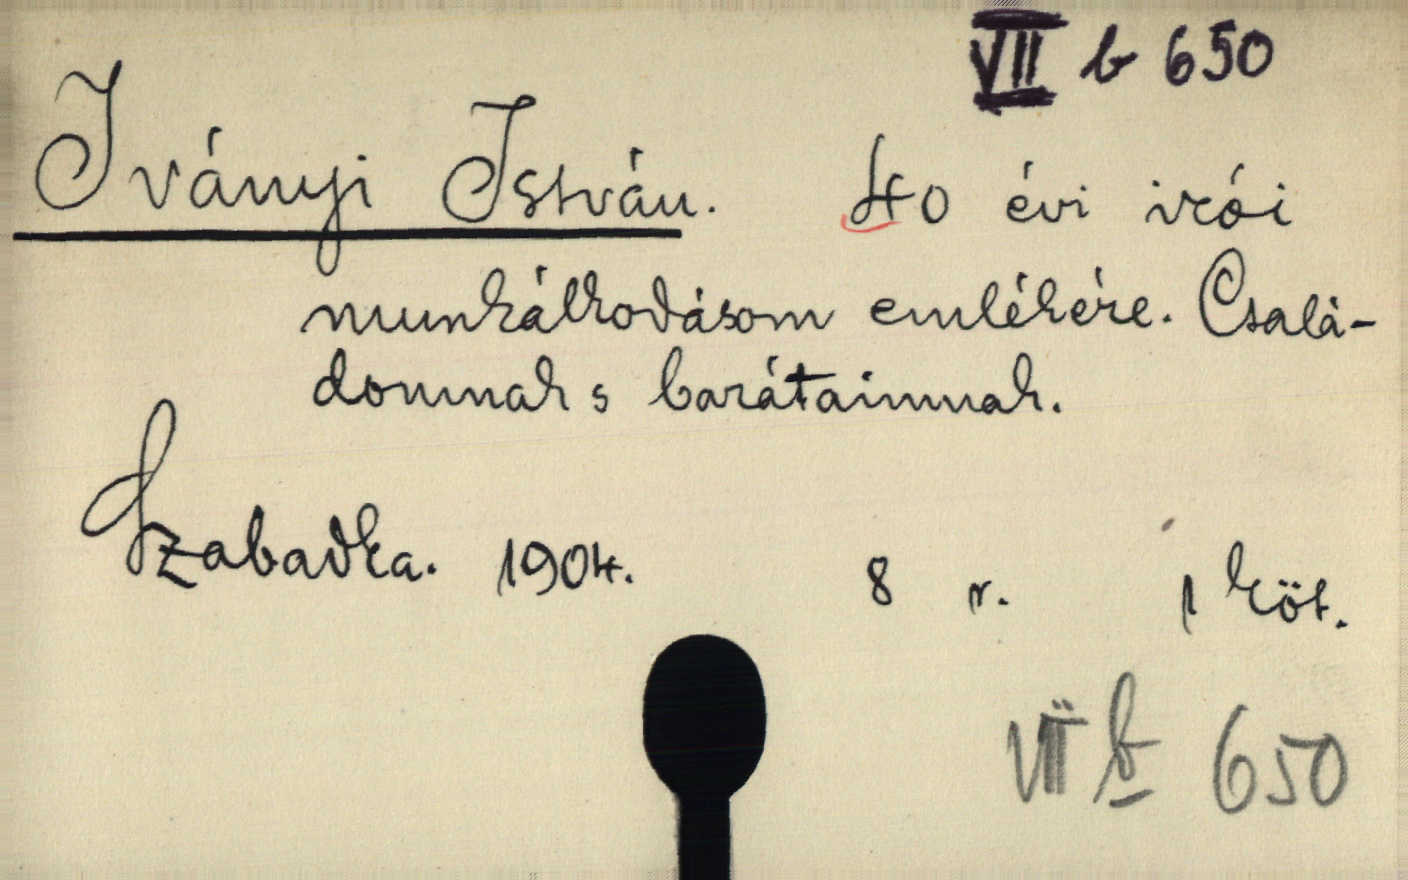 VII b 650
Iványi István. 40 évi irói
munkálkodásom emlékére. Csalá-
domnak s barátaimnak.
Szabadka. 1904. 8 r. 1 köt.
VII b 650